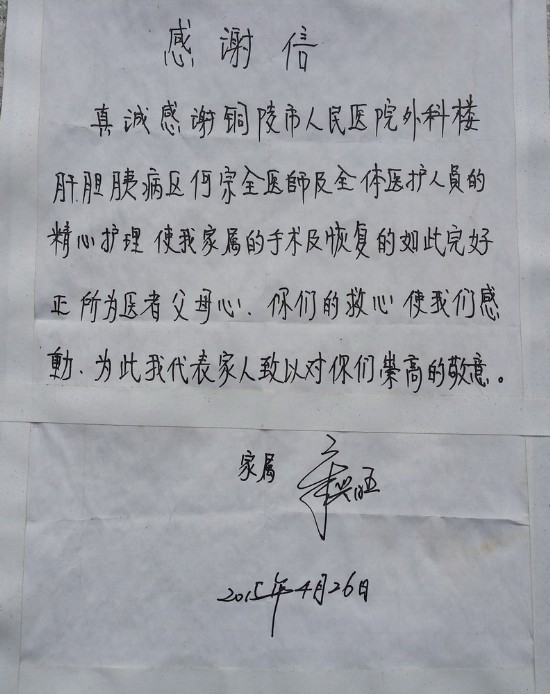 感谢信
真诚感谢铜陵市人民医院外科楼
肝胆胰病区何宗全医師及全体医护人員的
精心护理 使我家属的手术及恢复的如此完好
正所为医者父母心、你们的救心使我们感
動、为此我代表家人致以对你们崇高的敬意。
家属
2015年4月26日